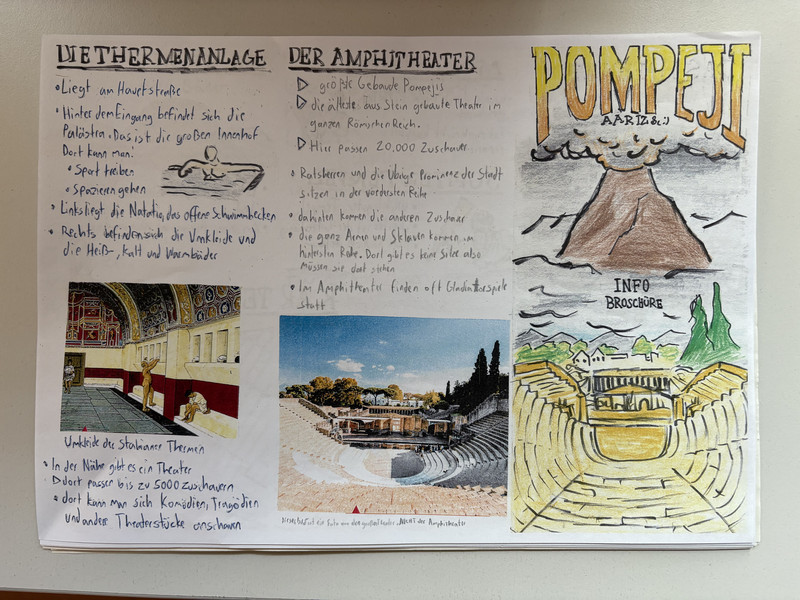 DIE THERMENANLAGE
• Liegt am Hauptstraße
• Hinter dem Eingang befindet sich die
Palästra. Das ist die großen Innenhof
Dort kann man:
• Sport treiben
• Spazieren gehen
• Links liegt die Natatio, das offene Schwimmbecken
• Rechts befinden sich die Umkleide und
die Heiß-, Kalt und Warmbäder
Umkleide der Stabianer Thermen
• In der Nähe gibt es ein Theater
▷ dort passen bis zu 5000 Zuschauern
• dort kann man sich Komödien, Tragödien
und andere Theaterstücke anschauen
DER AMPHITHEATER
▷ größte Gebäude Pompejis
▷ die älteste aus Stein gebaute Theater im
ganzen Römischen Reich.
▷ Hier passen 20.000 Zuschauer
• Ratsherren und die Übrige Prominenz der Stadt
sitzen in der vordersten Reihe
• dahinten kommen die anderen Zuschauer
• die ganz Armen und Sklaven kommen im
hintersten Reihe. Dort gibt es keine Sitze also
müssen sie dort stehen
• Im Amphitheater finden oft Gladiatorspiele
statt
ist ein Foto von den großen theater, NICHT der Amphitheater
POMPEJI
AARIZ 8c :)
INFO
BROSCHÜRE